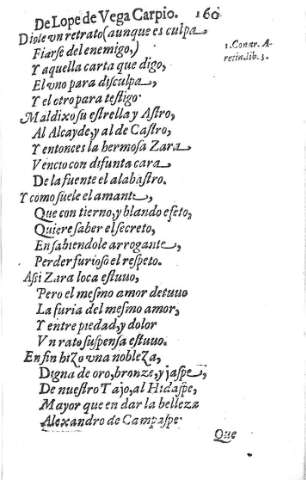 De Lope de Vega Carpio. 160
Diole vn retrato (aunque es culpa
Fiarse del enemigo,)
1. Contr. A-
retin. lib. 3.
Y aquella carta que digo,
El vno para disculpa,
Y el otro para testigo
Maldixo su estrella y Astro,
Al Alcayde, y al de Castro,
Y entonces la hermosa Zara
Vencio con difunta cara
De la fuente el alabastro.
Y como suele el amante,
Que con tierno, y blando efeto,
Quiere saber el secreto,
En sabiendole arrogante,
Perder furioso el respeto.
Assi Zara loca estuuo,
Pero el mesmo amor detuuo
La furia del mesmo amor,
Y entre piedad, y dolor
Vn rato suspensa estuuo.
En fin hizo vna nobleza,
Digna de oro, bronze, y jaspe,
De nuestro Tajo, al Hidaspe,
Mayor que en dar la belleza
Alexandro de Campaspe.
Que